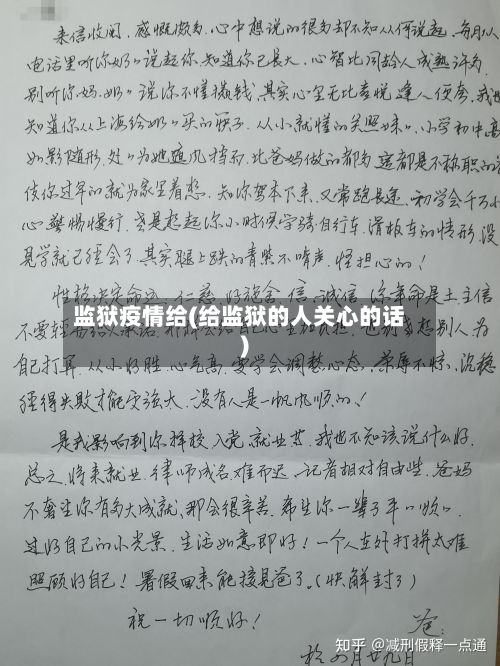 来信收阅，感慨颇多，心中想说的很多却不知从何说起，每月从
电话里听你奶"说起你，知道你已长大，心智比同龄人成熟许多
别听你妈、奶"说你不懂攒钱，其实心里无比喜悦，逢人便夸，我也
知道你从上海给奶"买的筷子，从小就懂的关照妹"，小学初中高
如影随形，处"为她遮风挡雨，比爸妈做的都多，这都是不称职的爸
使你过早的就为家里着想，知你驾本下来，又常跑长途，初学会千万小
心，警惕慢行，老是想起你小时候学骑自行车、滑板车的情形，没
见学就已经会了，其实腿上跌的青紫不啃声，怪担心的！
性格决定命运，仁慈、好施舍、信、诚信，你革命是土，主信
不要轻易给人承诺，
想别人为
自己打算，从小好胜，心气高，要学会调整心态，荣辱不惊，沉稳
经得失败才能变强大，没有人是一帆帆顺的！
是我影响到你择校、入党、就业等，我也不知该说什么好，
总之，将来就业，律师成名难而迟，记者相对自由些，爸妈
不奢望你有多大成就，那会很辛苦，希望你一辈子平"顺"，
过好自己的小光景，生活如意即好！一个人在外打拼太难
照顾好自己！暑假回来能接见爸了。（快解封了）
祝一切顺好！
爸：
于四月廿九日
监狱疫情给(给监狱的人关心的话
)
知乎 @减刑假释一点通